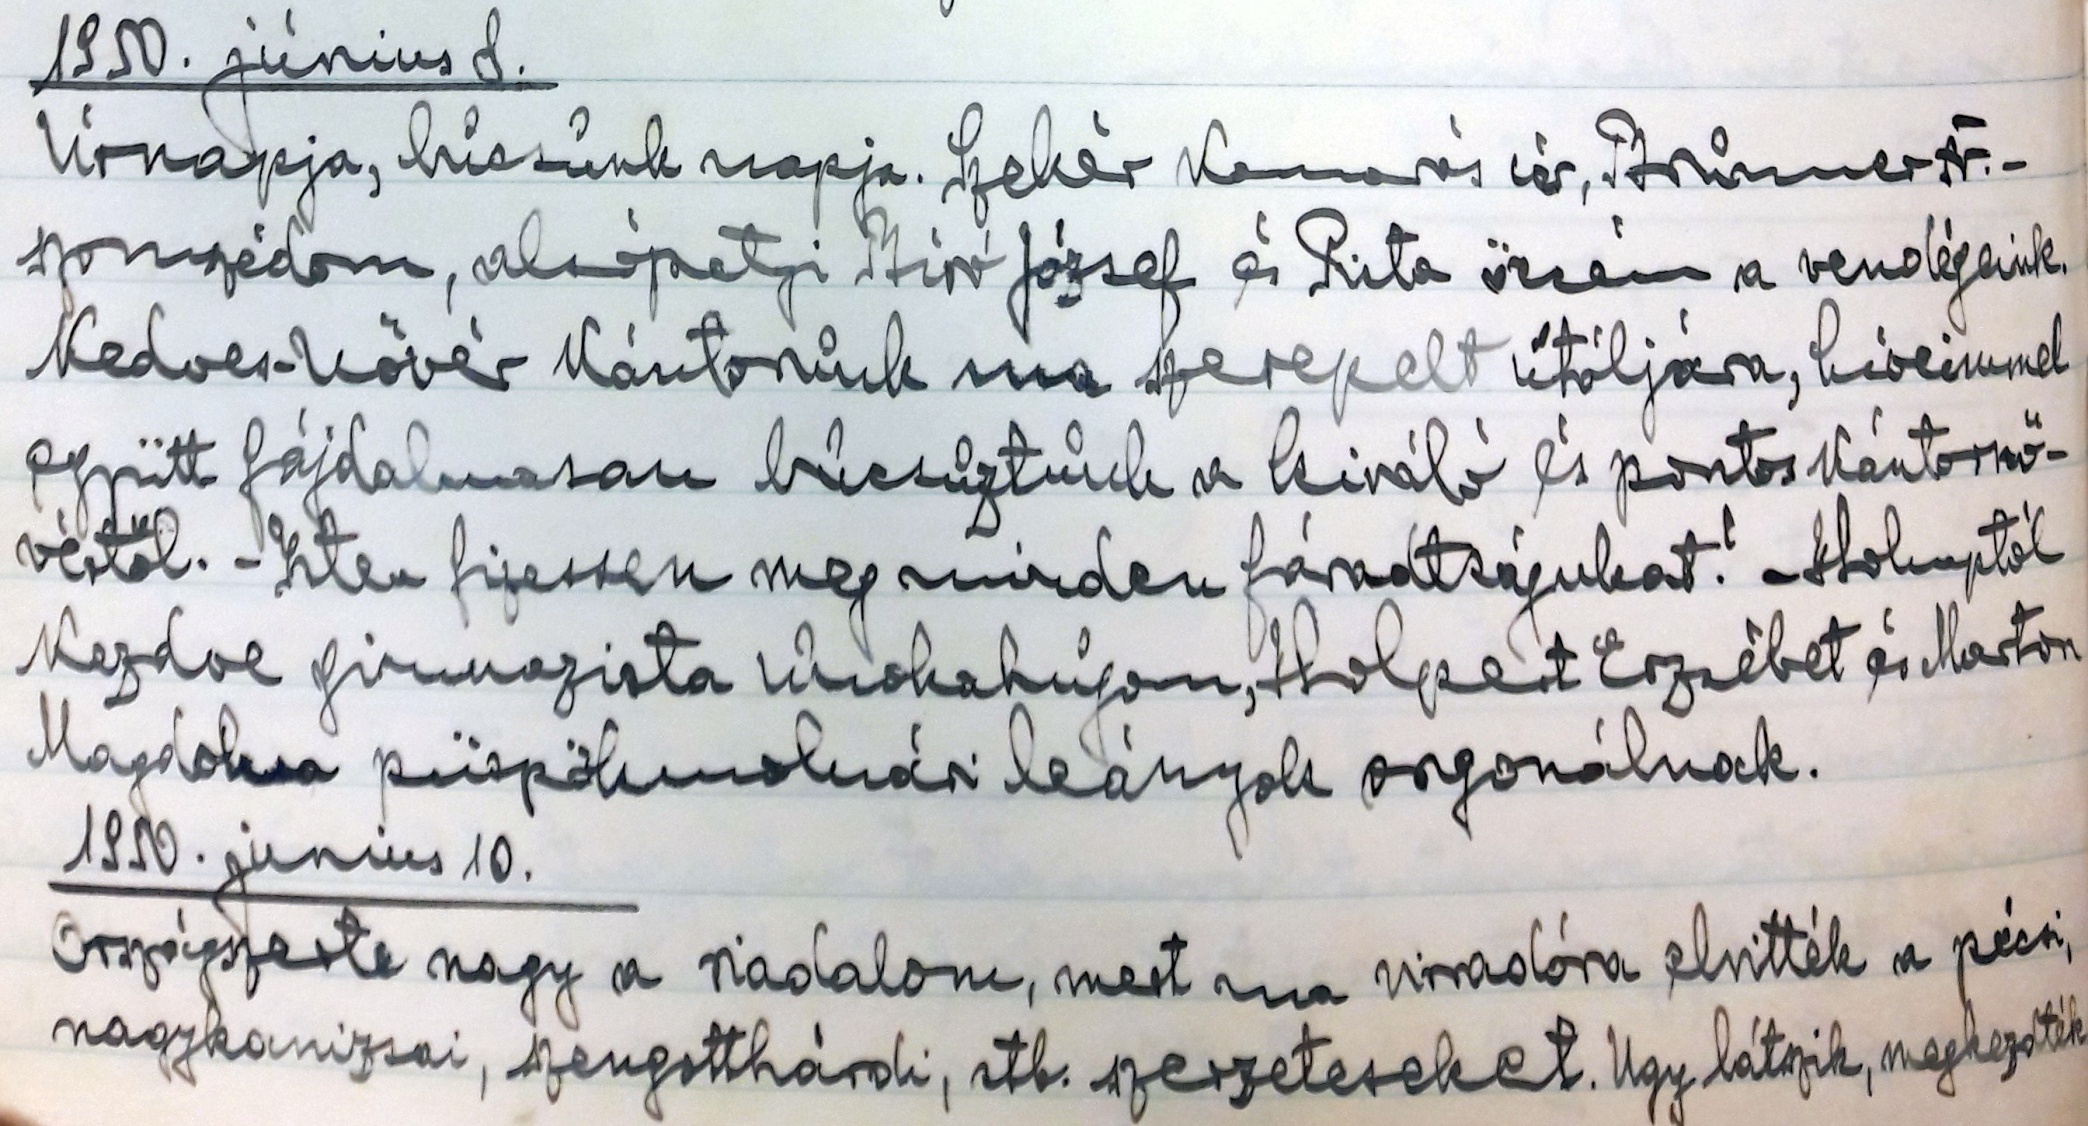 1950. június 8.
Úrnapja, búcsúnk napja. Szekér Kamarás úr, Brünner Fr.-
szomszédom, alsópatyi Bíró József és Rita öcsém a vendégeink.
Kedves-Nővér Kántorunk ma szerepelt útóljára, híveimmel
együtt fájdalmasan búcsúztunk a kiváló és pontos Kántornő-
vértől. - Isten fizessen meg minden fáradtságukat! - Holnaptól
Kezdve gimnazista unokahúgom, Holpert Erzsébet és Marton
Magdolna püspökmolnári leányok orgonálnak.
1950. június 10.
Országszerte nagy a riadalom, mert ma virradóra elvitték a pécsi,
nagykanizsai, szengotthárdi, stb. szerzeteseket. Ugy látszik, megkezdték